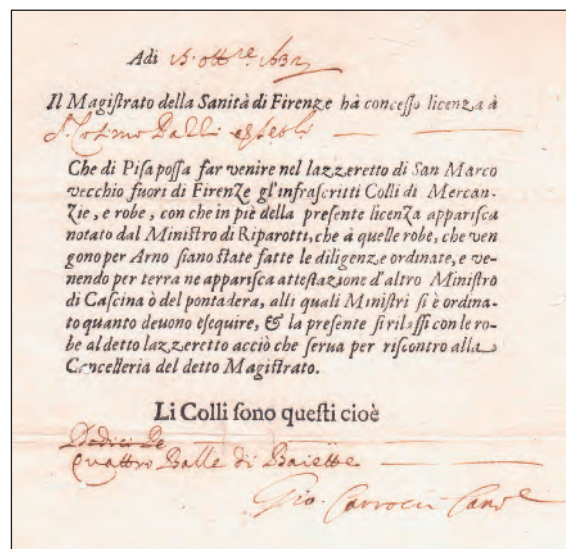 Adi 15 ott.re 1632
Il Magiſtrato della Sanità di Firenze hà conceſſo licenza à
S. Coſimo Balli e
Che di Piſa poſſa far venire nel lazzeretto di San Marco
vecchio fuori di Firenze gl'infraſcritti Colli di Mercan-
zie, e robe, con che in piè della preſente licenza appariſca
notato dal Miniſtro di Riparotti, che à quelle robe, che ven
gono per Arno ſiano ſtate fatte le diligenze ordinate, e ve-
nendo per terra ne appariſca atteſtazione d'altro Miniſtro
di Caſcina ò del pontadera, alli quali Miniſtri ſi è ordina-
to quanto deuono eſequire, & la preſente ſi rilaſſi con le ro-
be al detto lazzeretto acciò che ſerua per riſcontro alla
Cancelleria del detto Magiſtrato.
Li Colli ſono queſti cioè
Quattro Balle di Baiette
Gio. Carrocci Canc.e